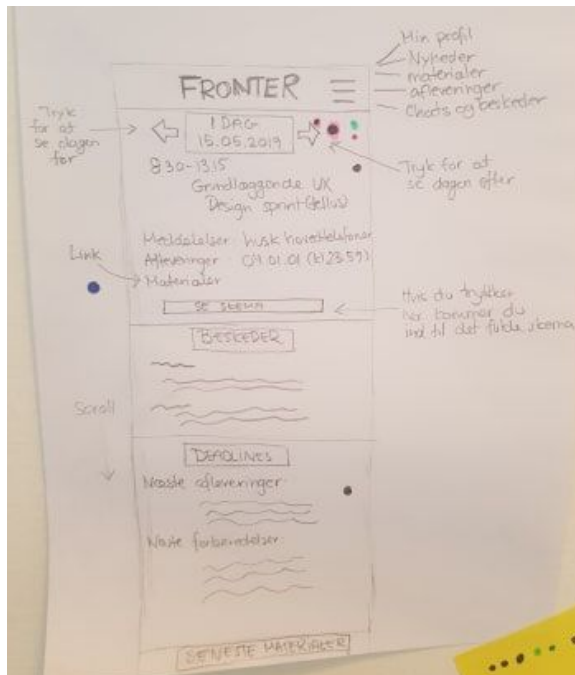 Min profil
Nyheder
materialer
afleveringer
Chats og beskeder
FRONTER
Tryk
for at
se dagen
før
I DAG
15.05.2019
Tryk for at
se dagen efter
8.30-13.15
Grundlæggende UX
Design sprint (tellus)
Meddelelser: husk hovedtelefoner
Afleveringer: 04.01.01 (kl 23.59)
Materialer
Link
SE SKEMA
Hvis du trykker
her kommer du
ind til det fulde skema
BESKEDER
Scroll
DEADLINES
Næste afleveringer
Næste forberedelser:
SENESTE MATERIALER